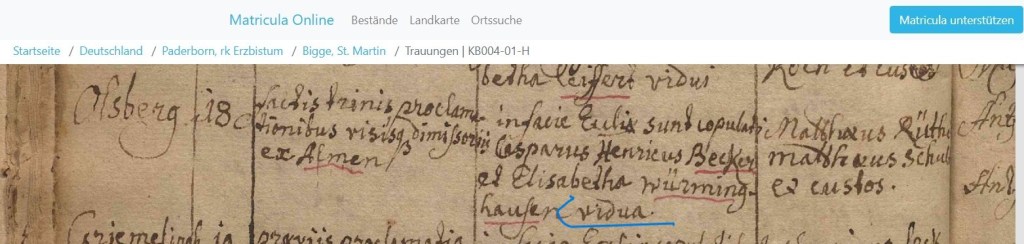 Matricula Online Bestände Landkarte Ortssuche Matricula unterstützen
Startseite / Deutschland / Paderborn, rk Erzbistum / Bigge, St. Martin / Trauungen | KB004-01-H
betha Seiffert vidui
Olsberg 18
factis trinis proclama-
tionibus visisq dimissorijs
ex Almen
in facie Eccliæ sunt copulati
Casparus Henricus Becker
et Elisabetha würming-
hausen vidua.
Matthæus Rüth
matthæus Schul
et custos.
præviis proclamatio